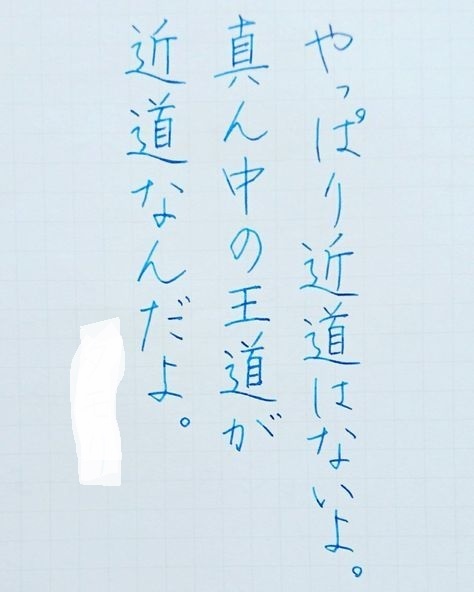 やっぱり近道はないよ。
真ん中の王道が
近道なんだよ。